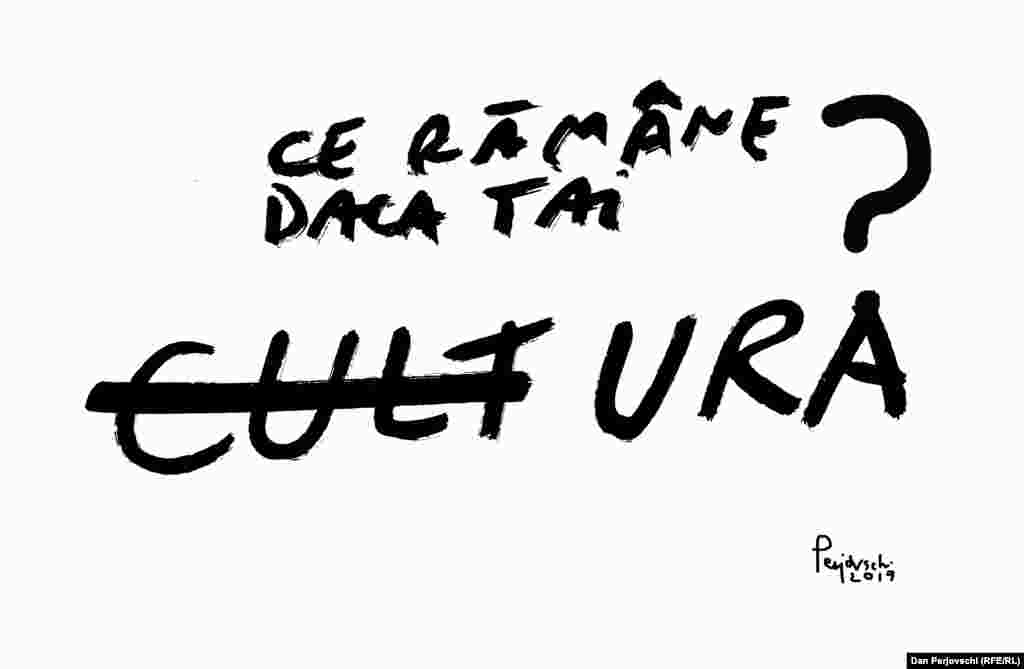 CE RĂMÂNE ?
DACA TAI
CULTURA
Perjovschi
2019
Dan Perjovschi (RFE/RL)